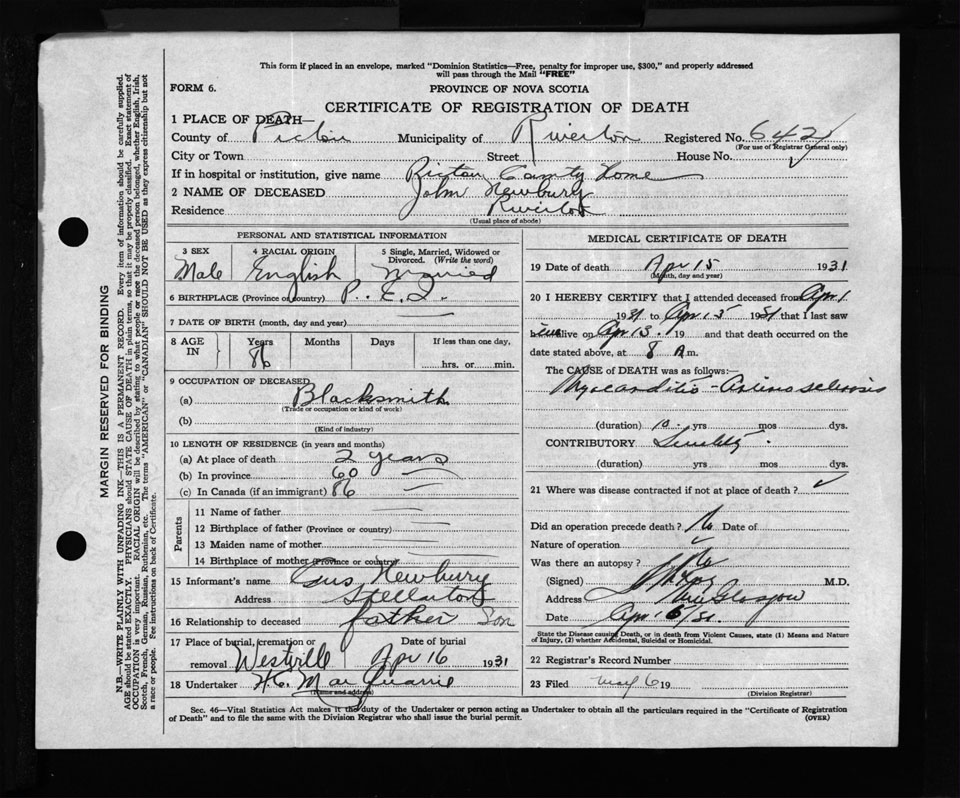 This form if placed in an envelope, marked "Dominion Statistics—Free, penalty for improper use, $300," and properly addressed
will pass through the Mail "FREE"
FORM 6.
PROVINCE OF NOVA SCOTIA
CERTIFICATE OF REGISTRATION OF DEATH
1 PLACE OF DEATH—
County of Pictou Municipality of Riverton Registered No. 642
(For use of Registrar General only)
City or Town Street House No.
If in hospital or institution, give name Pictou County Home
2 NAME OF DECEASED John Newbury
Residence Riverton
(Usual place of abode)
PERSONAL AND STATISTICAL INFORMATION
3 SEX Male
4 RACIAL ORIGIN English
5 Single, Married, Widowed or Divorced. (Write the word) Married
6 BIRTHPLACE (Province or country) P. E. I.
7 DATE OF BIRTH (month, day and year)
8 AGE IN Years 86 Months Days If less than one day, hrs. or min.
9 OCCUPATION OF DECEASED
(a) Blacksmith
(Trade or occupation or kind of work)
(b)
(Kind of industry)
10 LENGTH OF RESIDENCE (in years and months)
(a) At place of death 2 years
(b) In province 60
(c) In Canada (if an immigrant) 86
Parents
11 Name of father
12 Birthplace of father (Province or country)
13 Maiden name of mother
14 Birthplace of mother (Province or country)
15 Informant's name Newbury
Address Stellarton
16 Relationship to deceased father Son
17 Place of burial, cremation or removal Westville
Date of burial Apr 16 1931
18 Undertaker H. C. MacQuarrie
(Name and address)
MEDICAL CERTIFICATE OF DEATH
19 Date of death Apr 15 1931
(Month, day and year)
20 I HEREBY CERTIFY that I attended deceased from Apr 1
1931 to Apr 15 1931 that I last saw
alive on Apr 13. 19 and that death occurred on the
date stated above, at 8 A.m.
The CAUSE of DEATH was as follows:—
Myocarditis - Arteriosclerosis
(duration) 10 yrs mos dys.
CONTRIBUTORY Senility
(duration) yrs mos dys.
21 Where was disease contracted if not at place of death?
Did an operation precede death? No Date of
Nature of operation
Was there an autopsy? No
(Signed) M.D.
Address New Glasgow
Date Apr. 31
State the Disease causing Death, or in death from Violent Causes, state (1) Means and Nature
of Injury, (2) whether Accidental, Suicidal or Homicidal.
22 Registrar's Record Number
23 Filed May 6 19
(Division Registrar)
Sec. 46—Vital Statistics Act makes it the duty of the Undertaker or person acting as Undertaker to obtain all the particulars required in the "Certificate of Registration
of Death" and to file the same with the Division Registrar who shall issue the burial permit. (OVER)
MARGIN RESERVED FOR BINDING
N.B.—WRITE PLAINLY WITH UNFADING INK—THIS IS A PERMANENT RECORD. Every item of information should be carefully supplied.
AGE should be stated EXACTLY. PHYSICIANS should STATE CAUSE OF DEATH in plain terms, so that it may be properly classified. Exact statement of
OCCUPATION is very important. RACIAL ORIGIN will be described by stating to what people or race the deceased person belonged, whether English, Irish,
Scotch, French, German, Russian, Ruthenian, etc. The terms "AMERICAN" or "CANADIAN" SHOULD NOT BE USED as they express citizenship but not
a race or people. See instructions on back of Certificate.